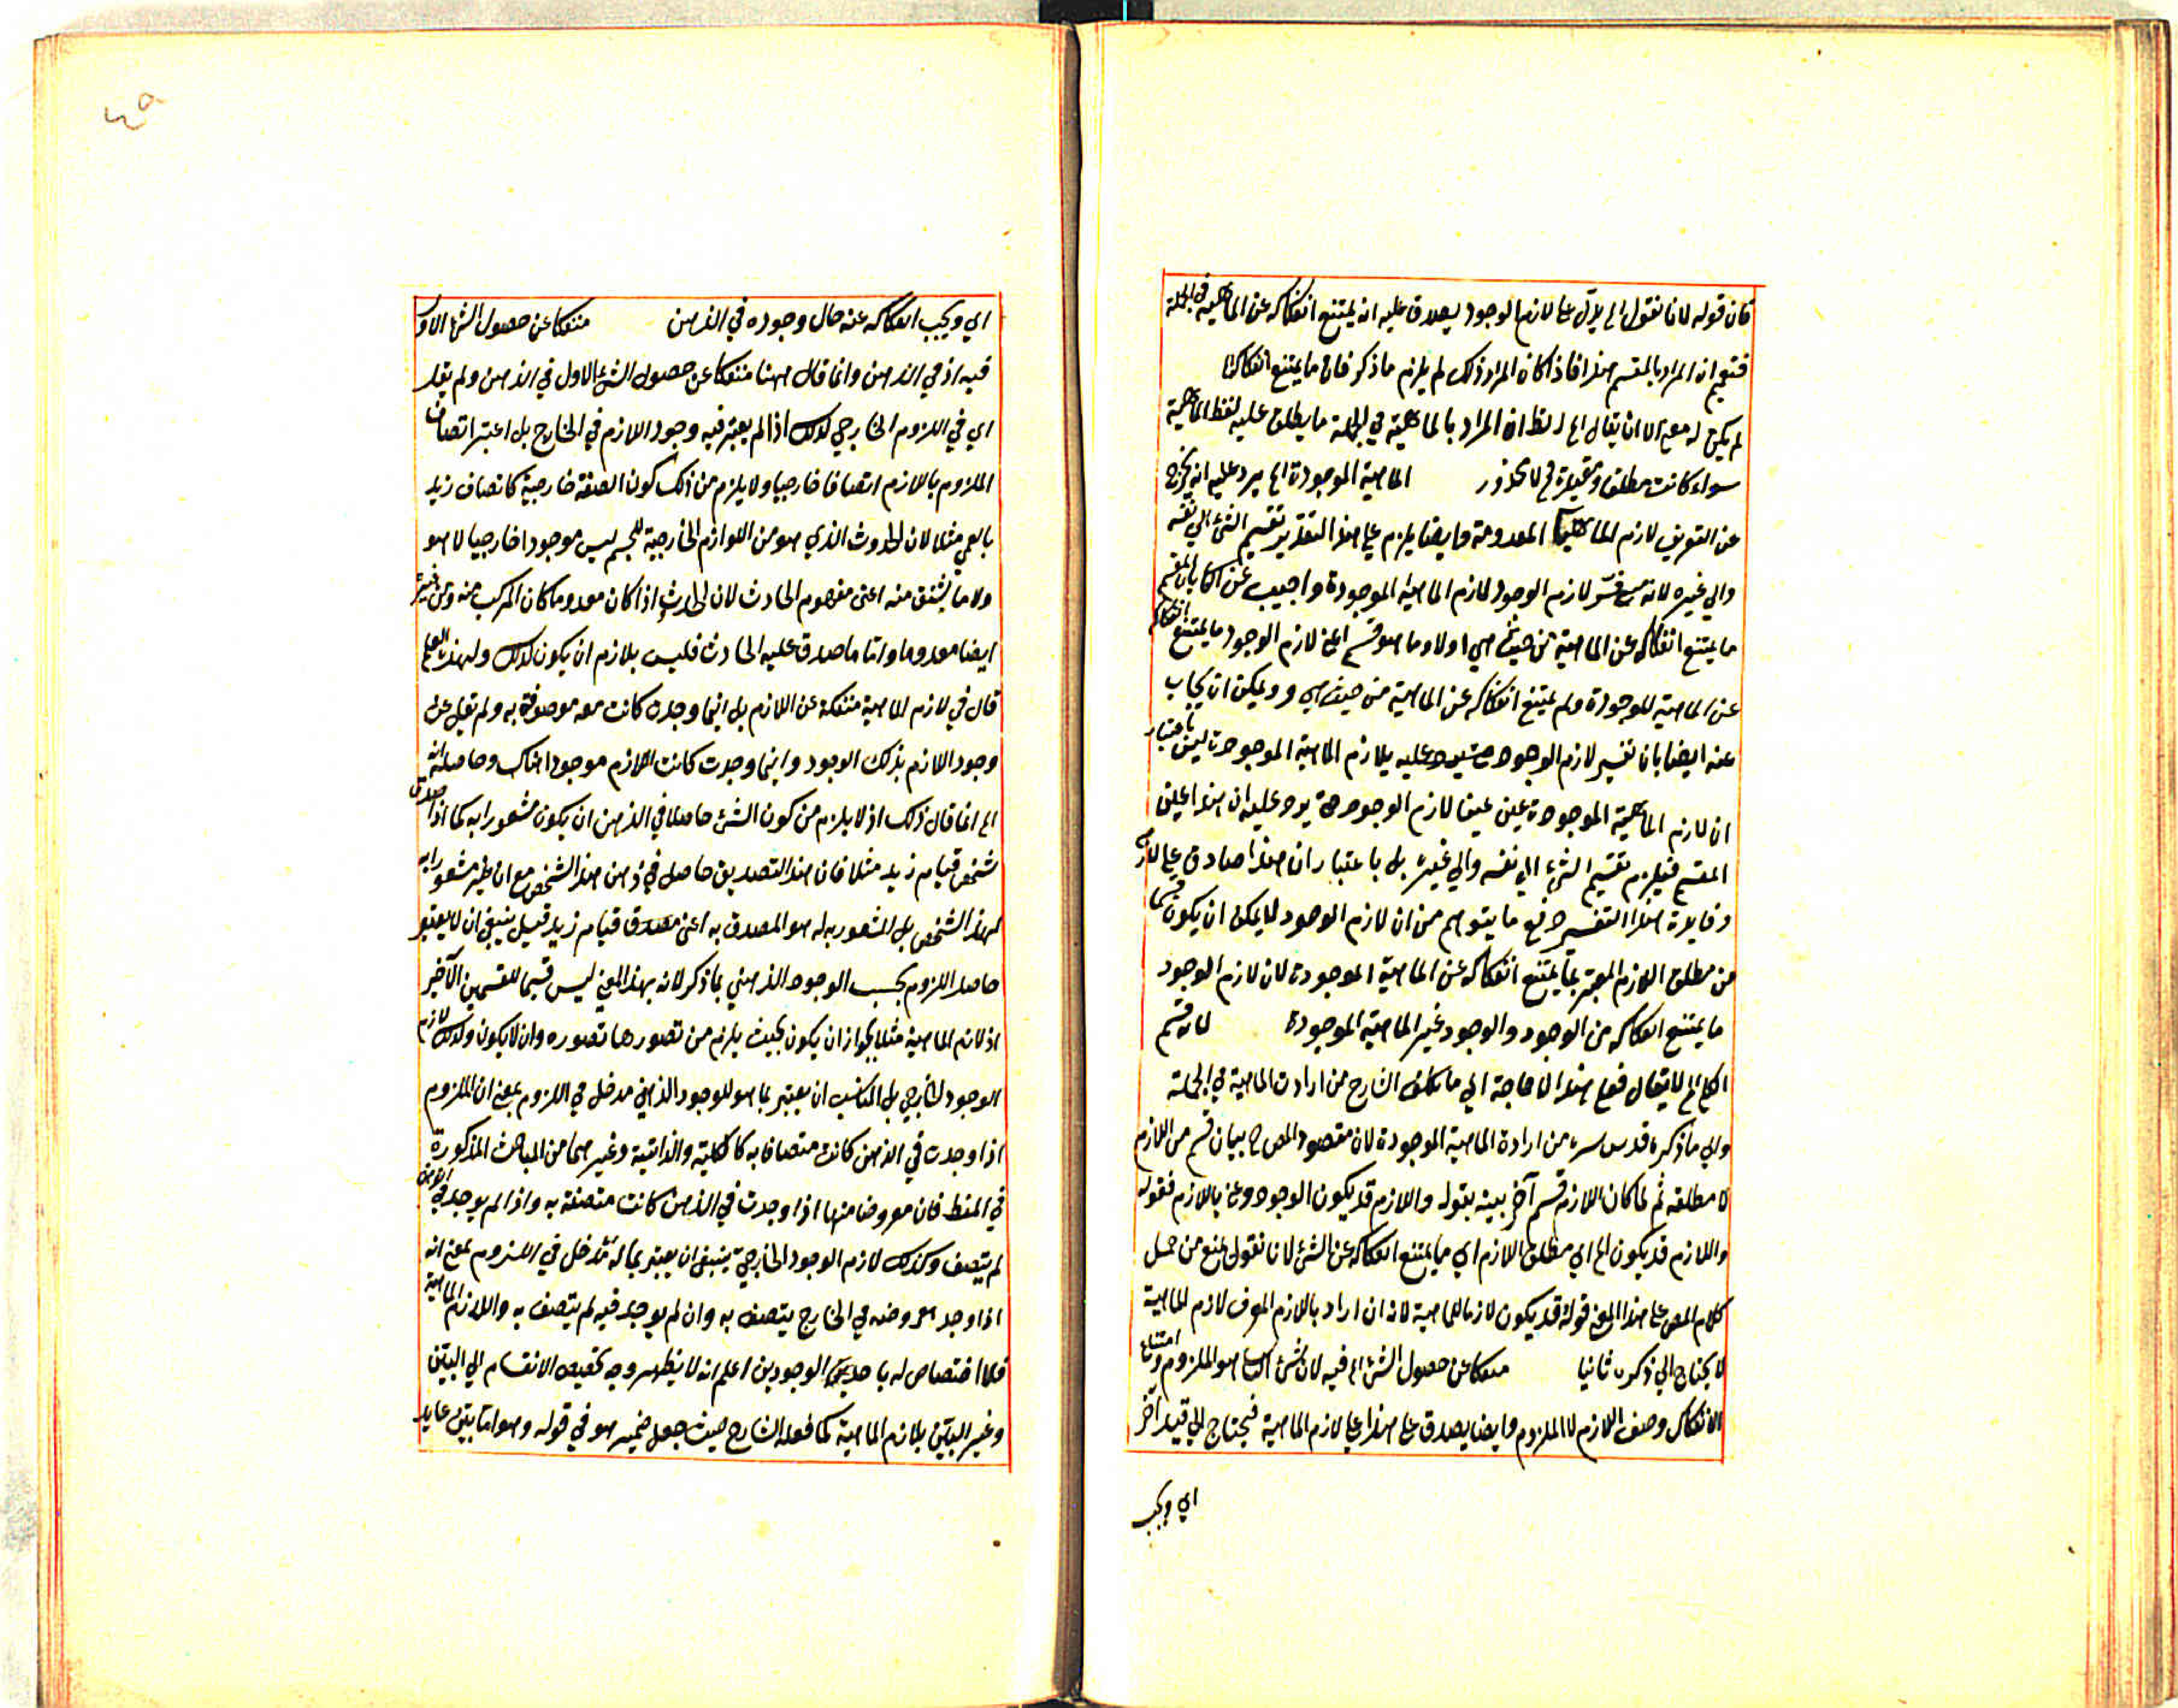 فان قوله لانا نقول الخ يدل على ان لازم الوجود يصدق عليه انه يمتنع انفكاكه عن الماهية في الجملة
فتعم ان المراد بالمقسم هذا فاذا كان المراد ذلك لم يلزم ما ذكر فان ما يمتنع انفكاكه
لم يكن له معنى الا ان يقال الخ المراد بالماهية في الجملة ما يطلق عليه لفظ الماهية
سواء كانت مطلقة او مقيدة فلا محذور الماهية الموجودة الخ يرد عليه انه يخرج
عن التعريف لازم الماهية المعدومة وايضا يلزم على هذا التقدير تقسيم الشيء الى نفسه
والى غيره لانه فسر لازم الوجود بلازم الماهية الموجودة واجيب عن الثاني بان المقسم
ما يمتنع انفكاكه عن الماهية من حيث هي اولا وما هو قسم اعني لازم الوجود ما يمتنع انفكاكه
عن الماهية الموجودة ولم يمتنع انفكاكه عن الماهية من حيث هي ويمكن ان يجاب
عنه ايضا بان تفسير لازم الوجود حيث يرد عليه بلازم الماهية الموجودة ليس باعتبار
ان لازم الماهية الموجودة عين لازم الوجود حتى يرد عليه ان هذا عين
المقسم فيلزم تقسيم الشيء الى نفسه والى غيره بل باعتبار ان هذا صادق على لازم
وفايدة هذا التفسير دفع ما يتوهم من ان لازم الوجود لا يمكن ان يكون قسما
من مطلق اللازم المعبر بما يمتنع انفكاكه عن الماهية الموجودة لان لازم الوجود
ما يمتنع انفكاكه من الوجود والوجود غير الماهية الموجودة لانه قسم
الخ لا يقال فعلى هذا لا حاجة الى ما تكلف الشارح من ارادة الماهية في الجملة
والى ما ذكره قدس سره من ارادة الماهية الموجودة لان مقصود المص ح بيان قسم من اللازم
لا مطلقه ثم لما كان اللازم قسم آخر بينه بقوله واللازم قد يكون الوجود وعن باللازم فقوله
واللازم قد يكون الخ اي مطلق اللازم اي ما يمتنع انفكاكه عن الشيء لانا نقول يمنع من حمل
كلام المص على هذا المعنى قوله قد يكون لازما للماهية لانه ان اراد باللازم المعرف لازم الماهية
لا يحتاج الى ذكره ثانيا منفكا عن حصول الشيء الخ فيه لان الشيء هو الملزوم وامتناع
الانفكاك وصف اللازم لا الملزوم وايضا يصدق على هذا على لازم الماهية فيحتاج الى قيد آخر
اي ويجب
اي ويجب انفكاكه عنه حال وجوده في الذهن منفكا عن حصول الشيء الاول
فيه اذ في الذهن وانما قال ههنا منفكا عن حصول الشيء الاول في الذهن ولم يقل
اي في اللزوم الخارجي كذلك اذا لم يعتبر فيه وجود اللازم في الخارج بل اعتبر اتصاف
الملزوم باللازم اتصافا خارجيا ولا يلزم من ذلك كون الصفة خارجية كاتصاف زيد
بالعمى مثلا لان الحدوث الذي هو من اللوازم الخارجية للجسم ليس موجودا خارجيا لا هو
ولا ما يشتق منه اعني مفهوم الحادث لان الحدوث اذا كان معدوما كان المركب منه ومن غيره
ايضا معدوما واما ما صدق عليه الحادث فليس بلازم ان يكون كذلك ولهذا
قال في لازم الماهية منفكة عن اللازم بل اينما وجدت كانت معه موصوفة به ولم تقل عن
وجود اللازم بذلك الوجود واينما وجدت كانت اللازم موجودا هناك وحاصله انه
الخ انما قال ذلك اذ لا يلزم من كون الشيء حاصلا في الذهن ان يكون مشعورا به كما اذا صدق
شخص قيام زيد مثلا فان هذا التصديق حاصل في ذهن هذا الشخص مع انه غير مشعور به
لهذا الشخص بل المشعور به له هو المصدق به اعني مصدق قيام زيد قيل ينبغي ان لا يعتبر
حاصل اللزوم بحسب الوجود الذهني بما ذكر لانه بهذا المعنى ليس قسيما للقسمين الآخر
اذ لازم الماهية مثلا يجوز ان يكون بحيث يلزم من تصورها تصوره وان لا يكون وكذلك لازم
الوجود الخارجي بل المناسب ان يعتبر بما هو للوجود الذهني مدخل في اللزوم بمعنى ان الملزوم
اذا وجدت في الذهن كانت متصفا به كالكلية والذاتية وغيرهما من المباحث المذكورة
في المنطق فان معروضاتها اذا وجدت في الذهن كانت متصفة به واذا لم يوجد في الذهن
لم يتصف وكذلك لازم الوجود الخارجي ينبغي ان يعتبر بما له مدخل في اللزوم بمعنى انه
اذا وجد معروضه في الخارج يتصف به وان لم يوجد فيه لم يتصف به واللازم الماهية
فلا اختصاص له باحدى الوجودين اعلم انه لا يظهر وجه تخصيص الانقسام الى البيّن
وغير البيّن بلازم الماهية كما فعله الشارح حيث جعل ضمير هو في قوله وهو اما بيّن عايد